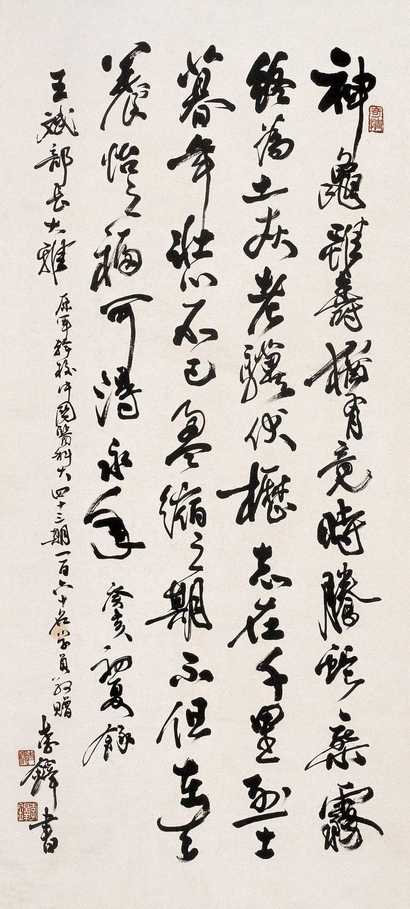 神龜雖壽猶有竟時騰蛇乘霧
終為土灰老驥伏櫪志在千里烈士
暮年壯心不已盈縮之期不但在天
養怡之福可得永年 癸亥初夏錄
王斌部長大雅 原軍校中國醫科大四十三期一百六十名學員敬贈 李鐸書